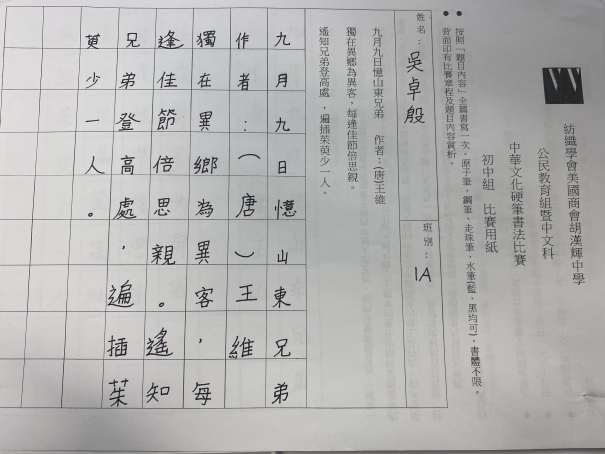 紡織學會美國商會胡漢輝中學
公民教育組暨中文科
中華文化硬筆書法比賽
初中組　比賽用紙
按照「題目內容」全篇書寫一次，原子筆、鋼筆、走珠筆、水筆(藍、黑均可)，書體不限。
背面印有比賽章程及題目內容賞析。
姓名：吳卓殷　班別：1A
九月九日憶山東兄弟　作者：(唐)王維
獨在異鄉為異客，每逢佳節倍思親。
遙知兄弟登高處，遍插茱萸少一人。
九月九日憶山東兄弟
作者：（唐）王維
獨在異鄉為異客，每
逢佳節倍思親。遙知
兄弟登高處，遍插茱
萸少一人。